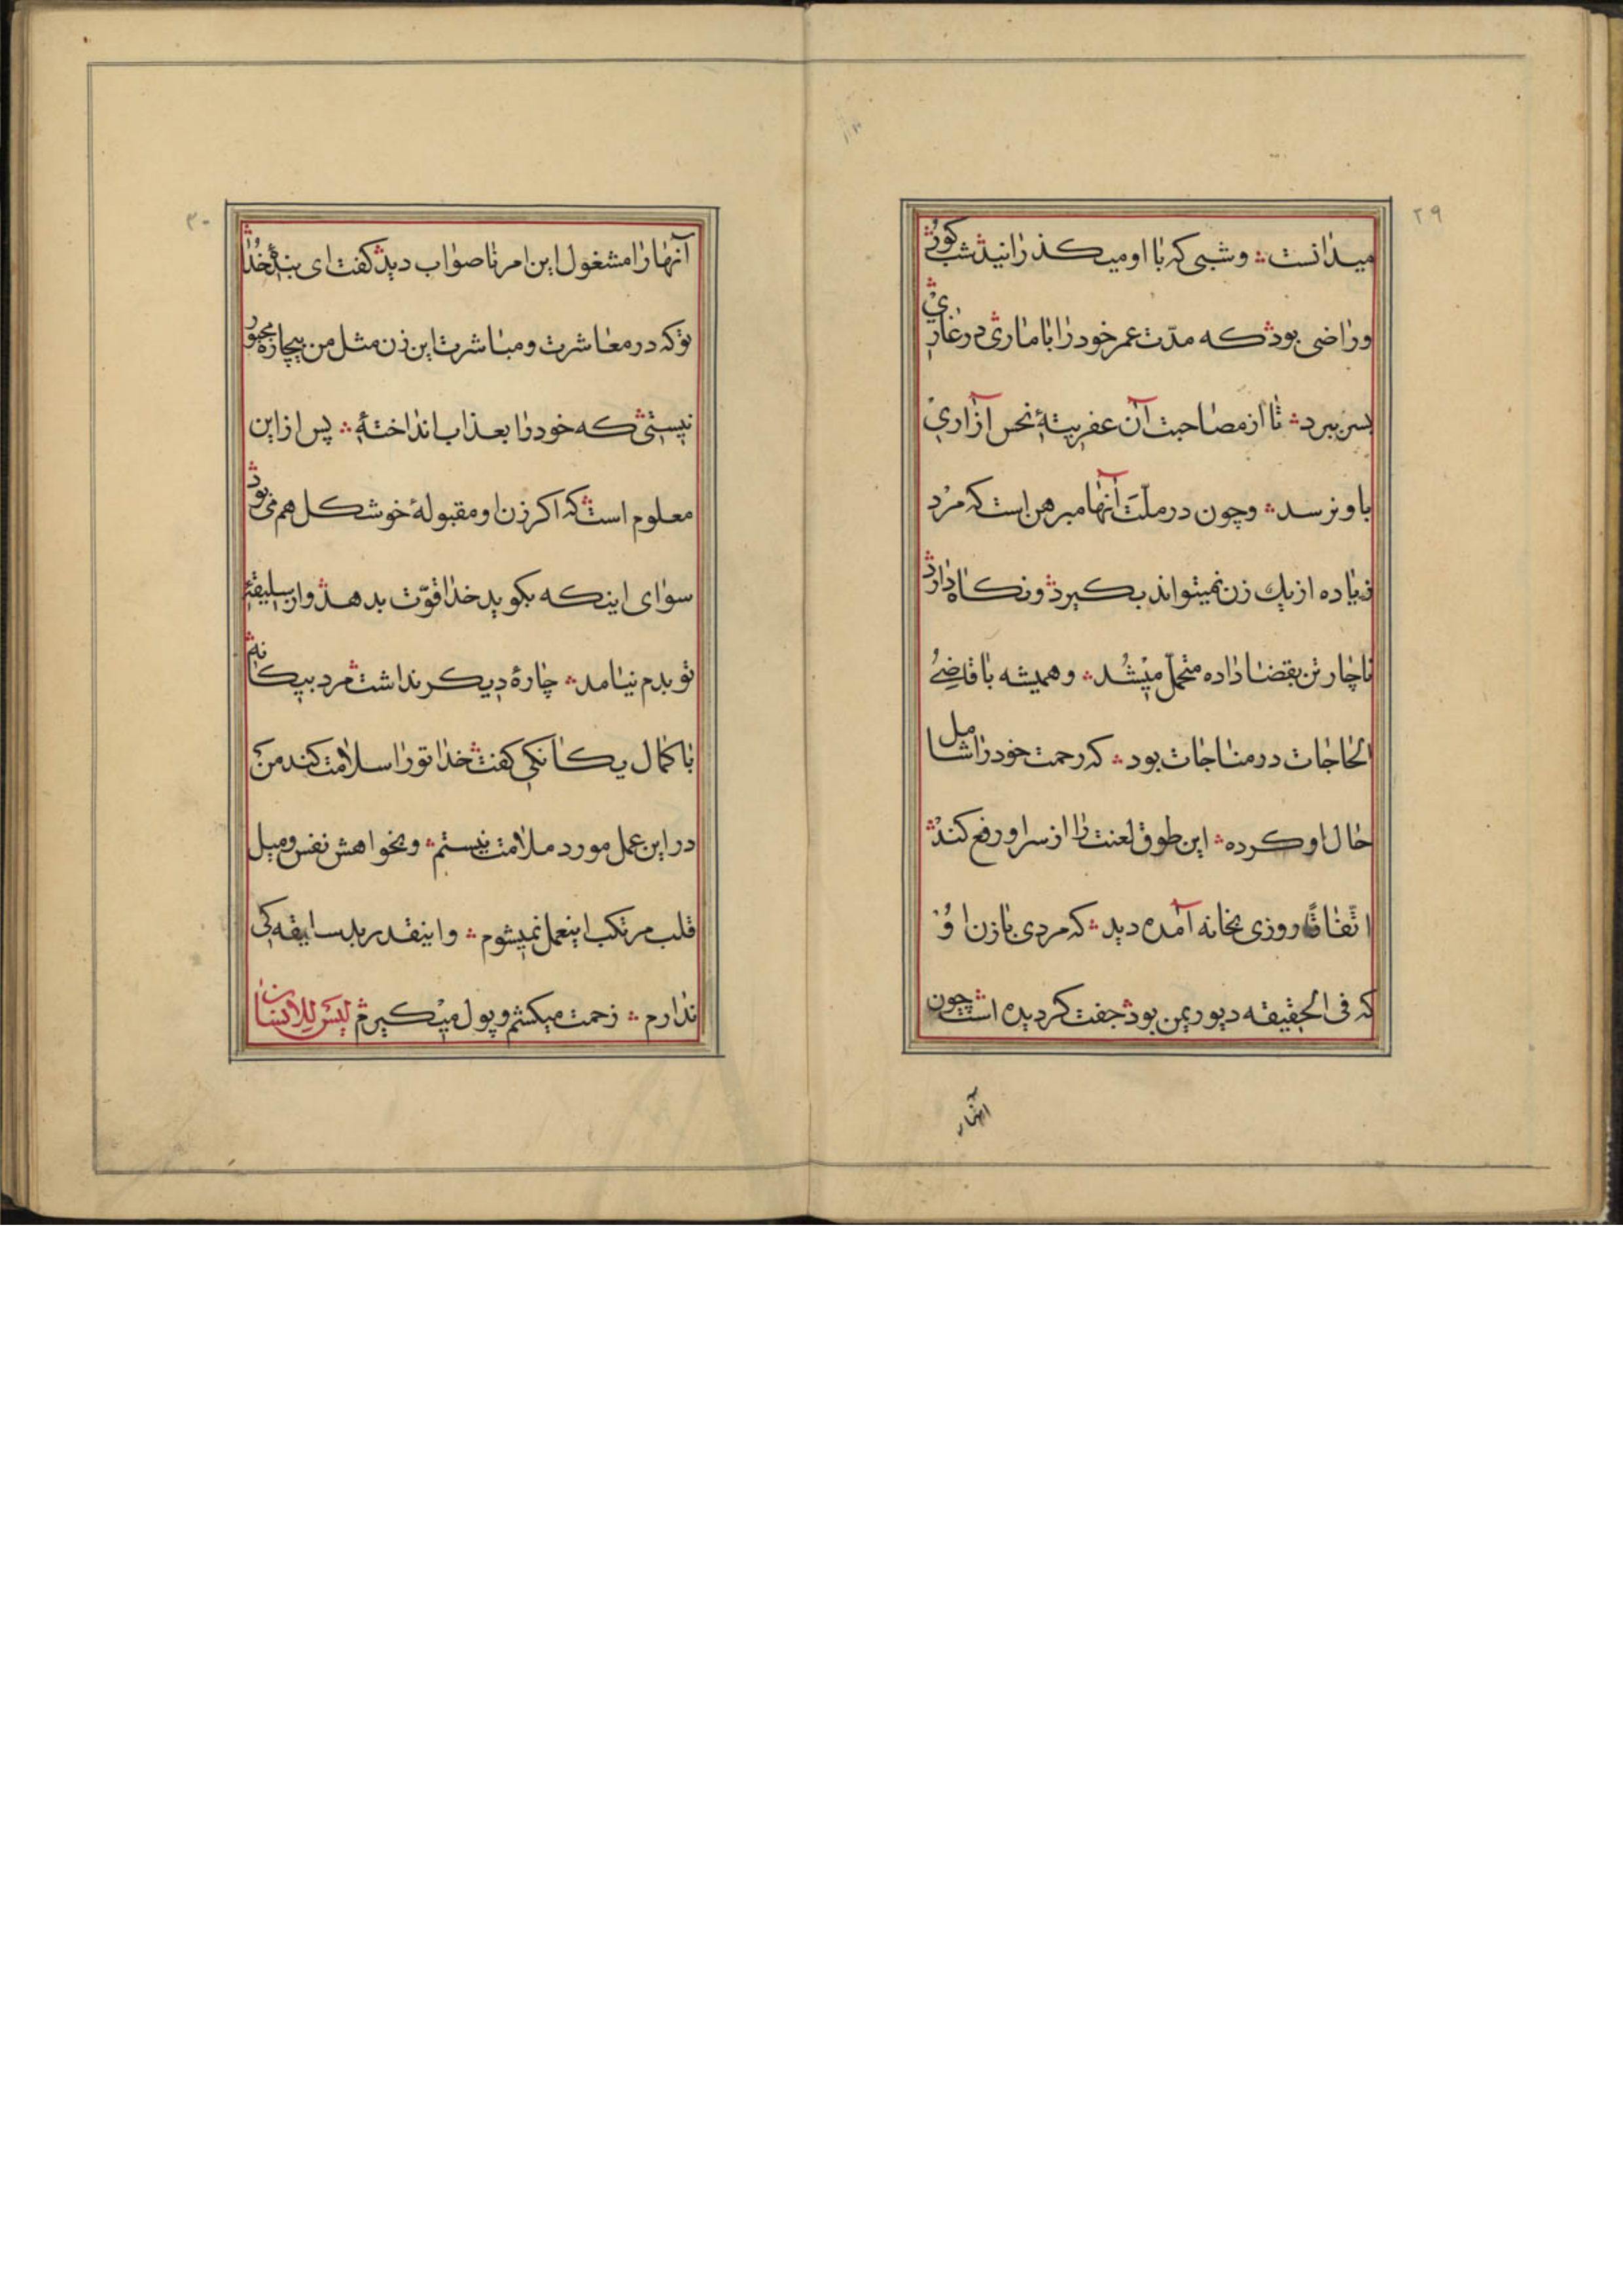 ۲۹
میدانست ؞ و شبی که با او میکذرانید شب کوری
و راضی بود که مدّت عمر خود را با ماری در غاری
بسر ببرد ؞ تا از مصاحبت آن عفریتهٔ نحس آزاری
باو نرسد ؞ و چون در ملّت آنها مبرهن است که مرد
زیاده از یك زن نمیتواند بکیرد و نکاه دارد
ناچار تن بقضا داده متحمّل میشد ؞ و همیشه با قاضی
الحاجات در مناجات بود ؞ که رحمت خود را شامل
حال او کرده ؞ این طوق لعنت را از سر او رفع کند
اتّفاقًا روزی بخانه آمده دید ؞ که مردی با زن او
که فی الحقیقه دیو ریمن بود جفت کردیده است چون
آنها را
۳۰
آنها را مشغول این امر ناصواب دید کفت ای بندهٔ خدا
تو که در معاشرت و مباشرت این زن مثل من بیچاره مجبور
نیستی که خود را بعذاب انداختهٔ ؞ پس از این
معلوم است که اکر زن او مقبولهٔ خوشکل هم می بود
سوای اینکه بکوید خدا قوّت بدهد و از سلیقهٔ
تو بدم نیامد ؞ چارهٔ دیکر نداشت مرد بیکانه
با کمال یکانکی کفت خدا تو را سلامت کند من
در این عمل مورد ملامت نیستم ؞ و بخواهش نفس و میل
قلب مرتکب اینعمل نمیشوم ؞ و اینقدر بد سلیقه کی
ندارم ؞ زحمت میکشم و پول میکیرم لیس للانسان